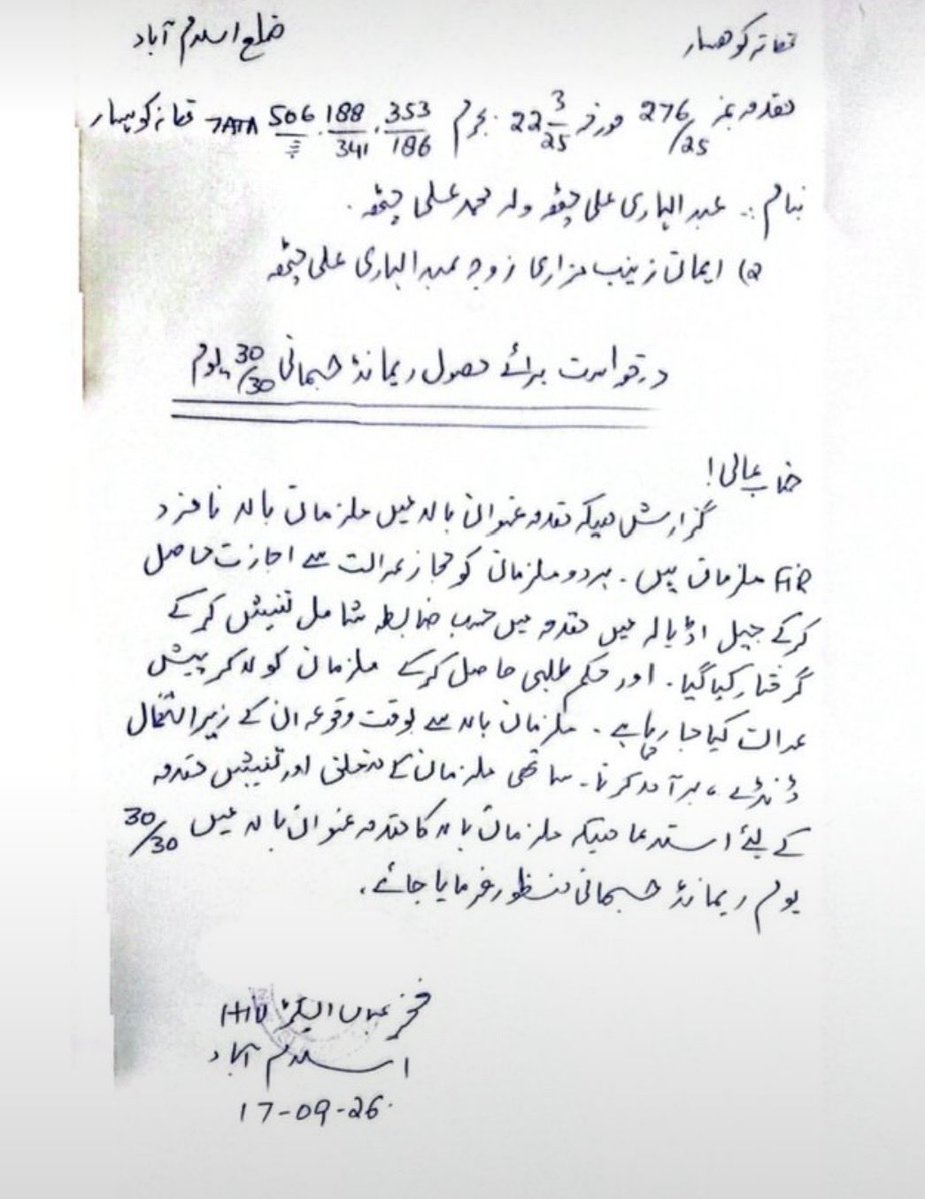 تھانہ کوہسار ضلع اسلام آباد
مقدمہ نمبر 276/25 مورخہ 22 3/25 بجرم 353/186 ، 188/341 ، 506 ii 7ATA تھانہ کوہسار
بنام :۔ عبدالہادی علی چٹھہ ولد محمد علی چٹھہ ۔
2) ایمان زینب مزاری زوجہ عبدالہادی علی چٹھہ
درخواست برائے حصول ریمانڈ جسمانی 30/30 یوم
جناب عالی!
گزارش ہیکہ مقدمہ عنوان بالا میں ملزمان بالا نامزد
FIR ملزمان ہیں ۔ ہردو ملزمان کو مجاز عدالت سے اجازت حاصل
کرکے جیل اڈیالہ میں مقدمہ میں حسب ضابطہ شامل تفتیش کرکے
گرفتار کیا گیا ۔ اور حکم طلبی حاصل کرکے ملزمان کو لاکر پیش
عدالت کیا جا رہا ہے ۔ ملزمان بالا سے بوقت وقوعہ ان کے زیر استعمال
ڈنڈے ، برآمد کرنا ۔ ساتھی ملزمان کے متعلق اور تفتیش مقدمہ
کے لیئے استدعا ہیکہ ملزمان بالا کا مقدمہ عنوان بالا میں 30/30
یوم ریمانڈ جسمانی منظور فرمایا جائے ۔
فخر عباس انسپکٹر HIU
اسلام آباد
17-09-26